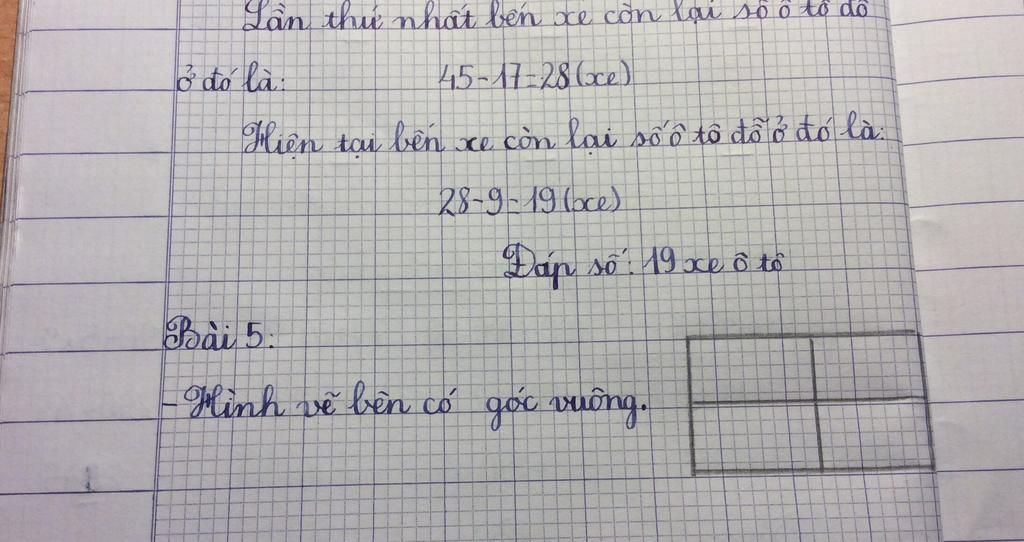 Lần thứ nhất bến xe còn lại số ô tô đỗ
ở đó là:
45-17=28(xe)
Hiện tại bến xe còn lại số ô tô đỗ ở đó là:
28-9=19(xe)
Đáp số: 19 xe ô tô
Bài 5:
- Hình vẽ bên có góc vuông.